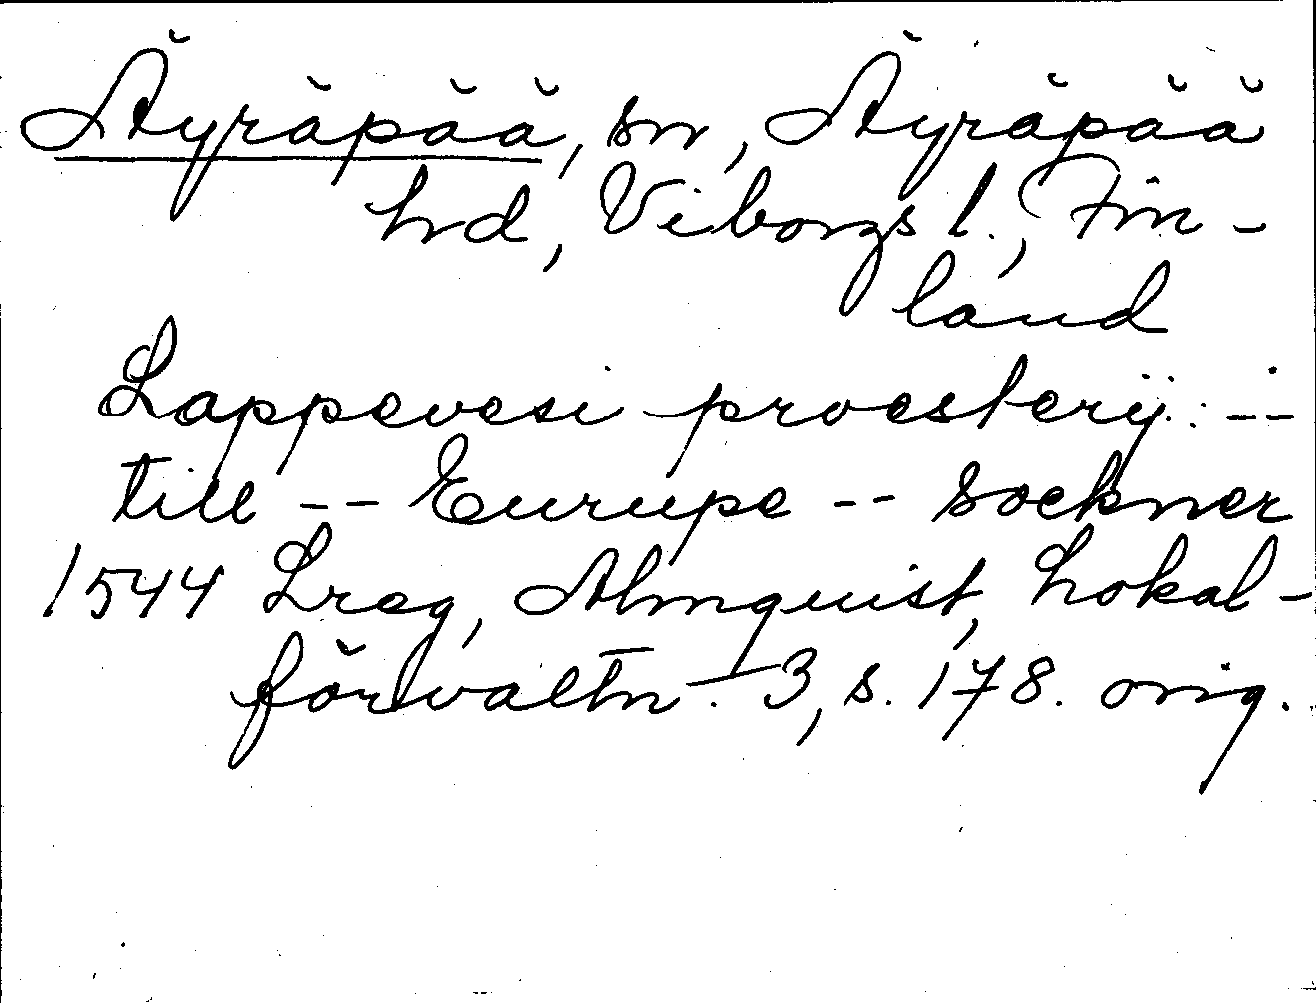 Äyräpää, sn, Äyräpää
hd, Viborgs l., Fin-
land
Lappevesi proesterij: --
till -- Eurupe -- sockner
1544 Lreg, Almquist, Lokal-
förvaltn. 3, s. 178. orig.